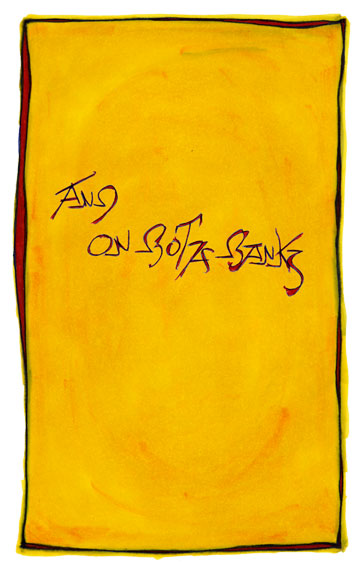 AND
ON BOTH BANKS